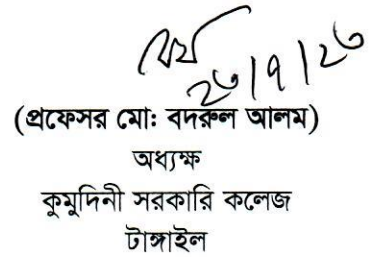 ২৩/৭/২৩
(প্রফেসর মো: বদরুল আলম)
অধ্যক্ষ
কুমুদিনী সরকারি কলেজ
টাঙ্গাইল